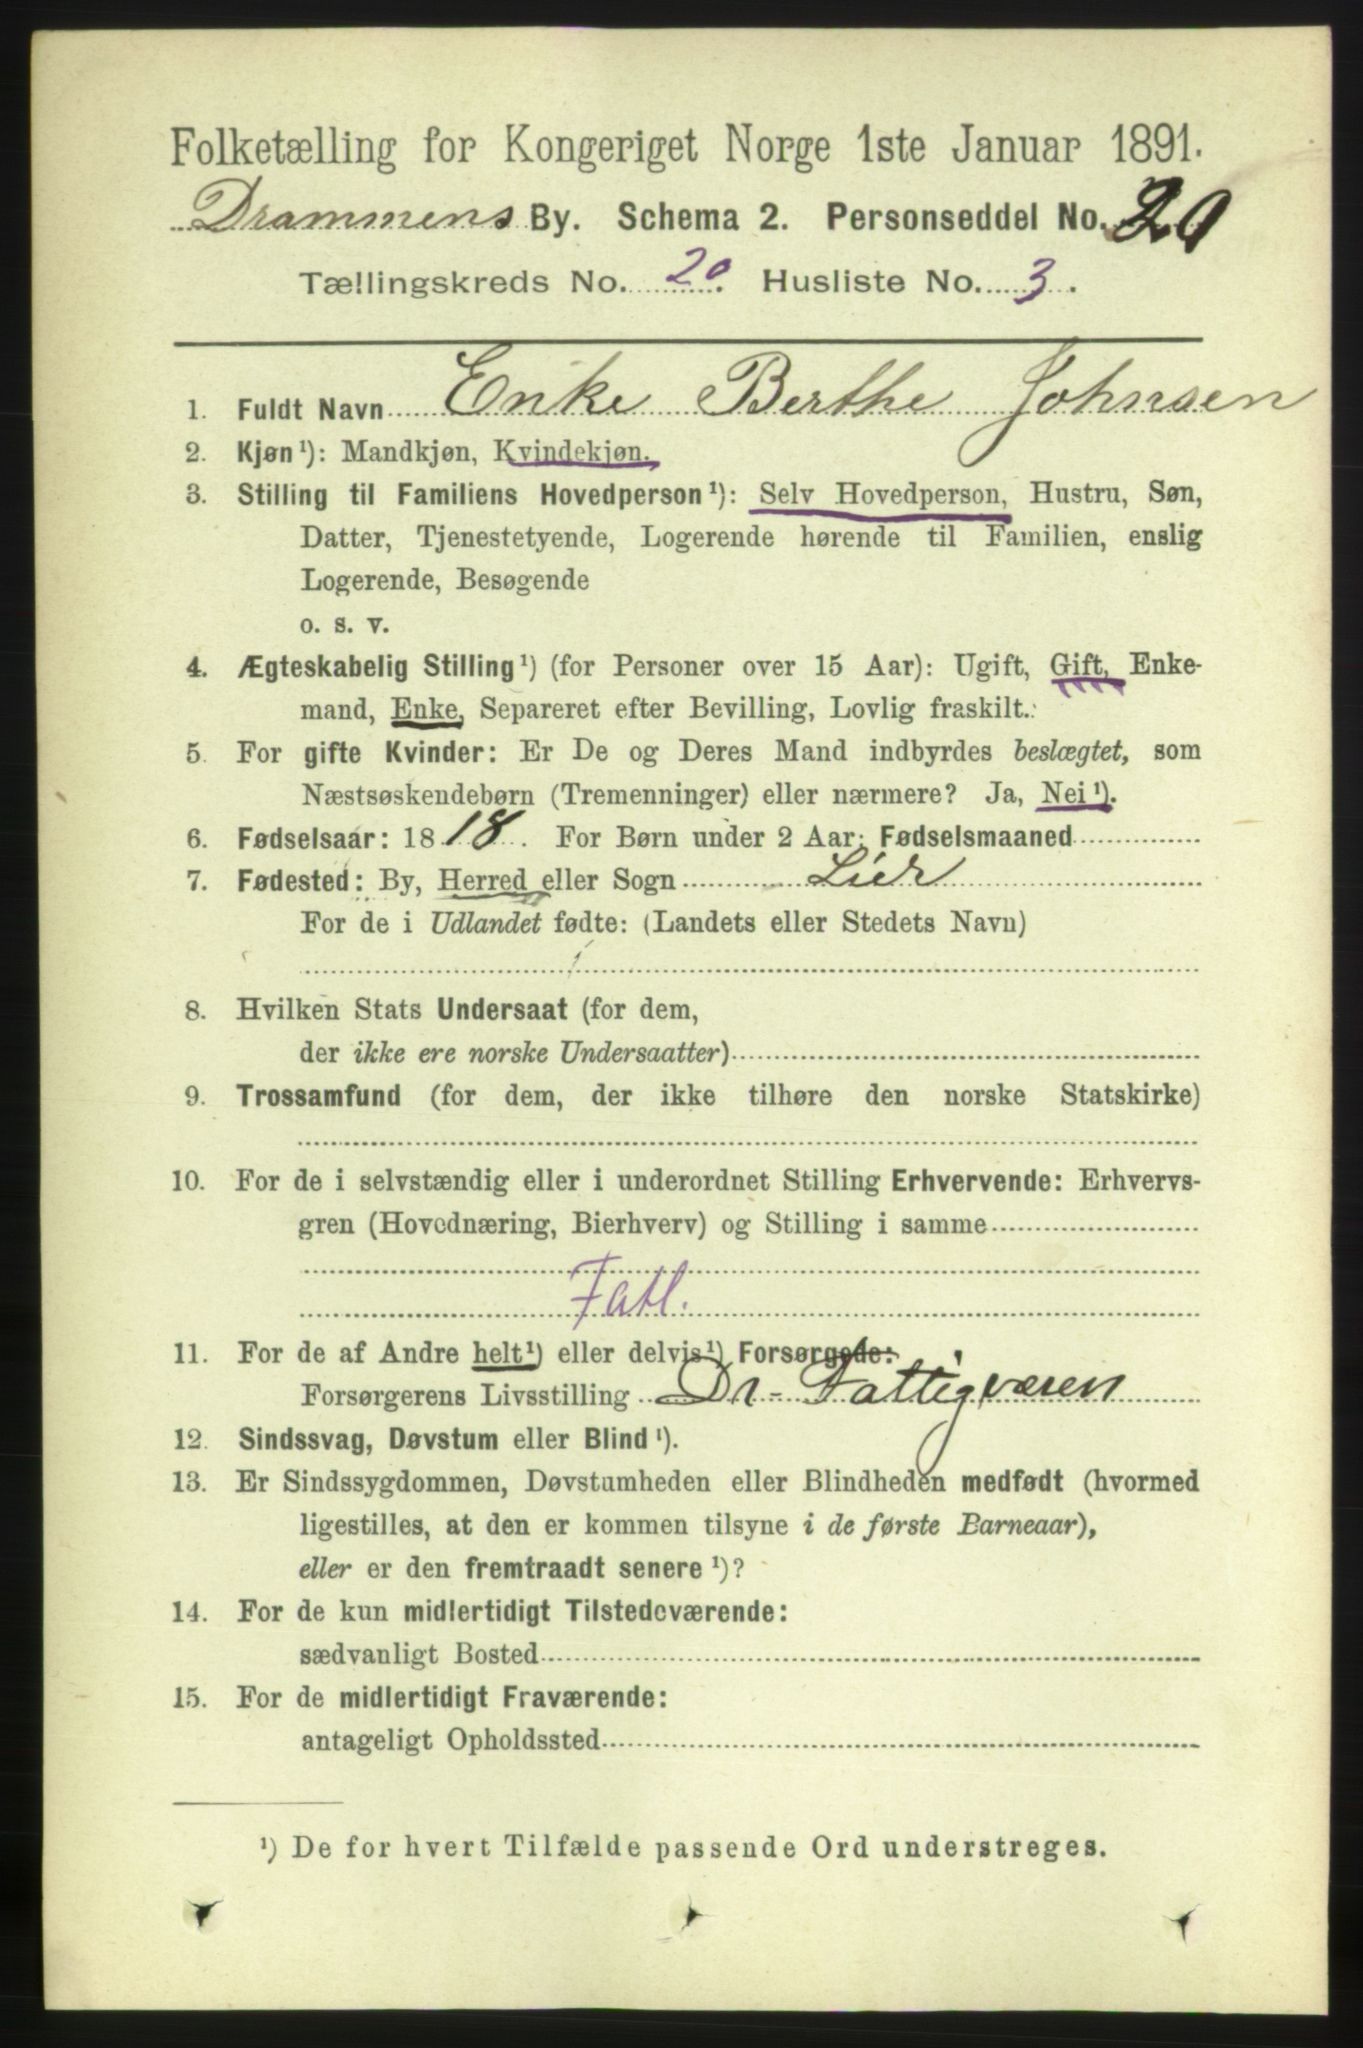 Folketælling for Kongeriget Norge 1ste Januar 1891.
Drammens By. Schema 2. Personseddel No. 20
Tællingskreds No. 20. Husliste No. 3.
1. Fuldt Navn Enke Berthe Johnsen
2. Kjøn¹): Mandkjøn, Kvindekjøn.
3. Stilling til Familiens Hovedperson¹): Selv Hovedperson, Hustru, Søn,
Datter, Tjenestetyende, Logerende hørende til Familien, enslig
Logerende, Besøgende
o. s. v.
4. Ægteskabelig Stilling¹) (for Personer over 15 Aar): Ugift, Gift, Enke-
mand, Enke, Separeret efter Bevilling, Lovlig fraskilt.
5. For gifte Kvinder: Er De og Deres Mand indbyrdes beslægtet, som
Næstsøskendebørn (Tremenninger) eller nærmere? Ja, Nei¹).
6. Fødselsaar: 1818. For Børn under 2 Aar: Fødselsmaaned
7. Fødested: By, Herred eller Sogn Lier
For de i Udlandet fødte: (Landets eller Stedets Navn)
8. Hvilken Stats Undersaat (for dem,
der ikke ere norske Undersaatter)
9. Trossamfund (for dem, der ikke tilhøre den norske Statskirke)
10. For de i selvstændig eller i underordnet Stilling Erhvervende: Erhvervs-
gren (Hovednæring, Bierhverv) og Stilling i samme
Fatl.
11. For de af Andre helt¹) eller delvis¹) Forsørgede:
Forsørgerens Livsstilling Dr- Fattigvæsen
12. Sindssvag, Døvstum eller Blind¹).
13. Er Sindssygdommen, Døvstumheden eller Blindheden medfødt (hvormed
ligestilles, at den er kommen tilsyne i de første Barneaar),
eller er den fremtraadt senere¹)?
14. For de kun midlertidigt Tilstedeværende:
sædvanligt Bosted
15. For de midlertidigt Fraværende:
antageligt Opholdssted
¹) De for hvert Tilfælde passende Ord understreges.